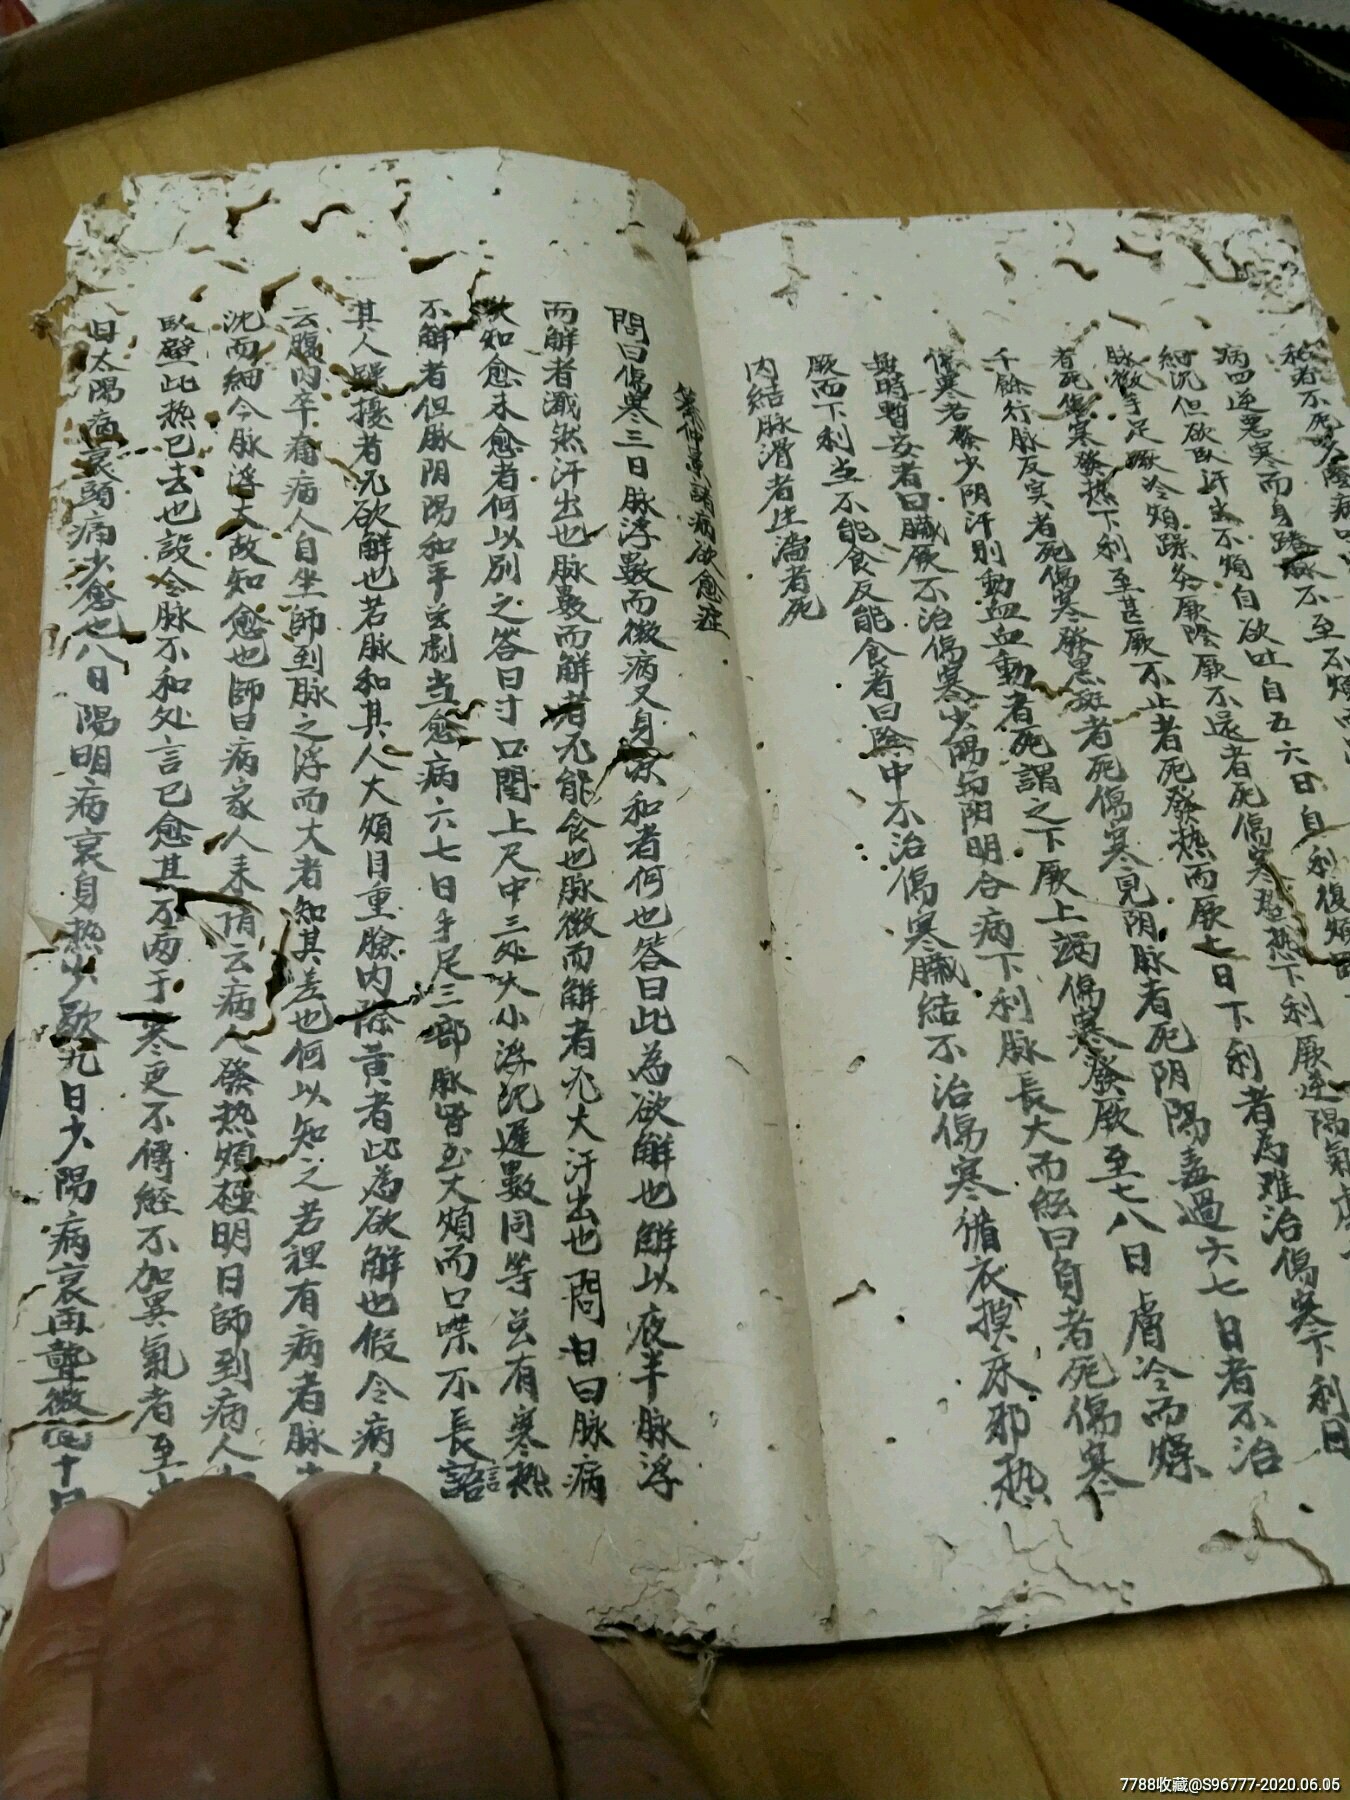 病四逆惡寒而身踡脉不至不煩而
細沉但欲臥汗出不煩自欲吐自五六日自利復煩
脉微手足厥冷煩躁灸厥陰厥不还者死傷寒發热下利厥逆
者死傷寒發热下利至甚厥不止者死發热而厥七日下利者為难治傷寒下利日
千餘行脉反实者死傷寒發黑斑者死傷寒見阴脉者死阴陽盡過六七日者不治
傷寒若發少阴汗則動血血動者死謂之下厥上竭傷寒發厥至七八日膚冷而燥
無時暫安者曰臟厥不治傷寒少陽与阳明合病下利脉長大而絃曰負者死傷寒
厥而下利当不能食反能食者曰除中不治傷寒臟結不治傷寒循衣摸床邪热
内結脉滑者生濇者死
纂仲景諸病欲愈症
問曰傷寒三日脉浮數而微病又身凉和者何也答曰此為欲解也解以夜半脉浮
而解者濈然汗出也脉數而解者兀能食也脉微而解者兀大汗出也問曰脉病
欲知愈未愈者何以別之答曰寸口関上尺中三处大小浮沉遲數同等岂有寒热
不解者但脉阴陽和平岂劇当愈病六七日手足三部脉皆至大煩而口噤不長語言
其人躁擾者兀欲解也若脉和其人大煩目重臉内除黄者此為欲解也假令病人
云腹内卒痛病人自坐師到脉之浮而大者知其差也何以知之若裡有病者脉
沈而細今脉浮大故知愈也師曰病家人来請云病人發热煩極明日師到病人
臥壁此热已去也設令脉不和处言已愈其不两于寒更不傳經不加異氣者至
日太陽病衰頭痛少愈也八日陽明病衰身热少歇九日少陽病衰耳聾微十日
7788收藏@S96777-2020.06.05